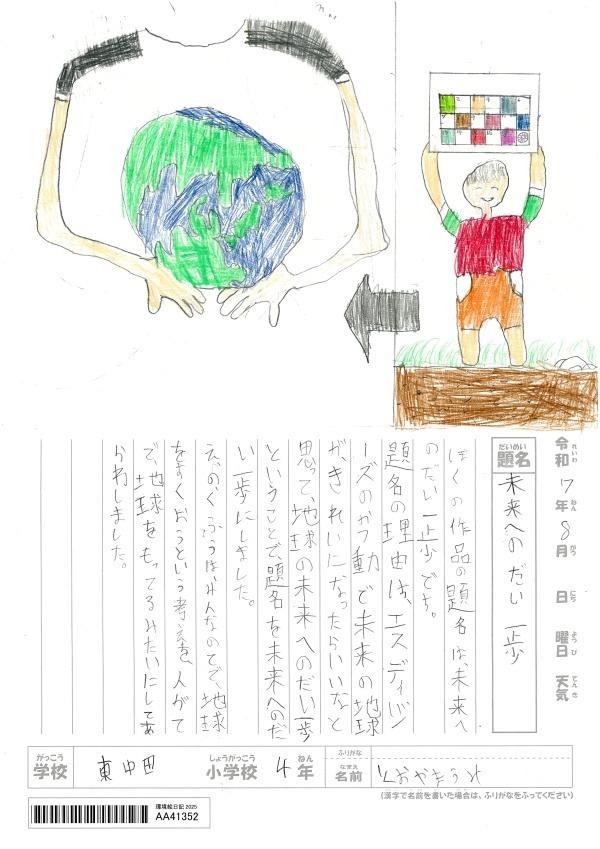 令和7年8月 日 曜日 天気
れいわ ねん がつ にち ようび てんき
題名 未来へのだい一歩
だいめい
ぼくの作品の題名は、未来へ
のだい一歩です。
題名の理由は、エスディジ
ーズのかつ動で未来の地球
が、きれいになったらいいなと
思って、地球の未来へのだい一歩
ということで、題名を未来へのだ
い一歩にしました。
で、地球をもってるみたいにしてあ
らわしました。
がっこう しょうがっこう ねん ふりがな
学校 東中田 小学校 4年 名前
なまえ
(漢字で名前を書いた場合は、ふりがなをふってください)
環境絵日記 2025
AA41352